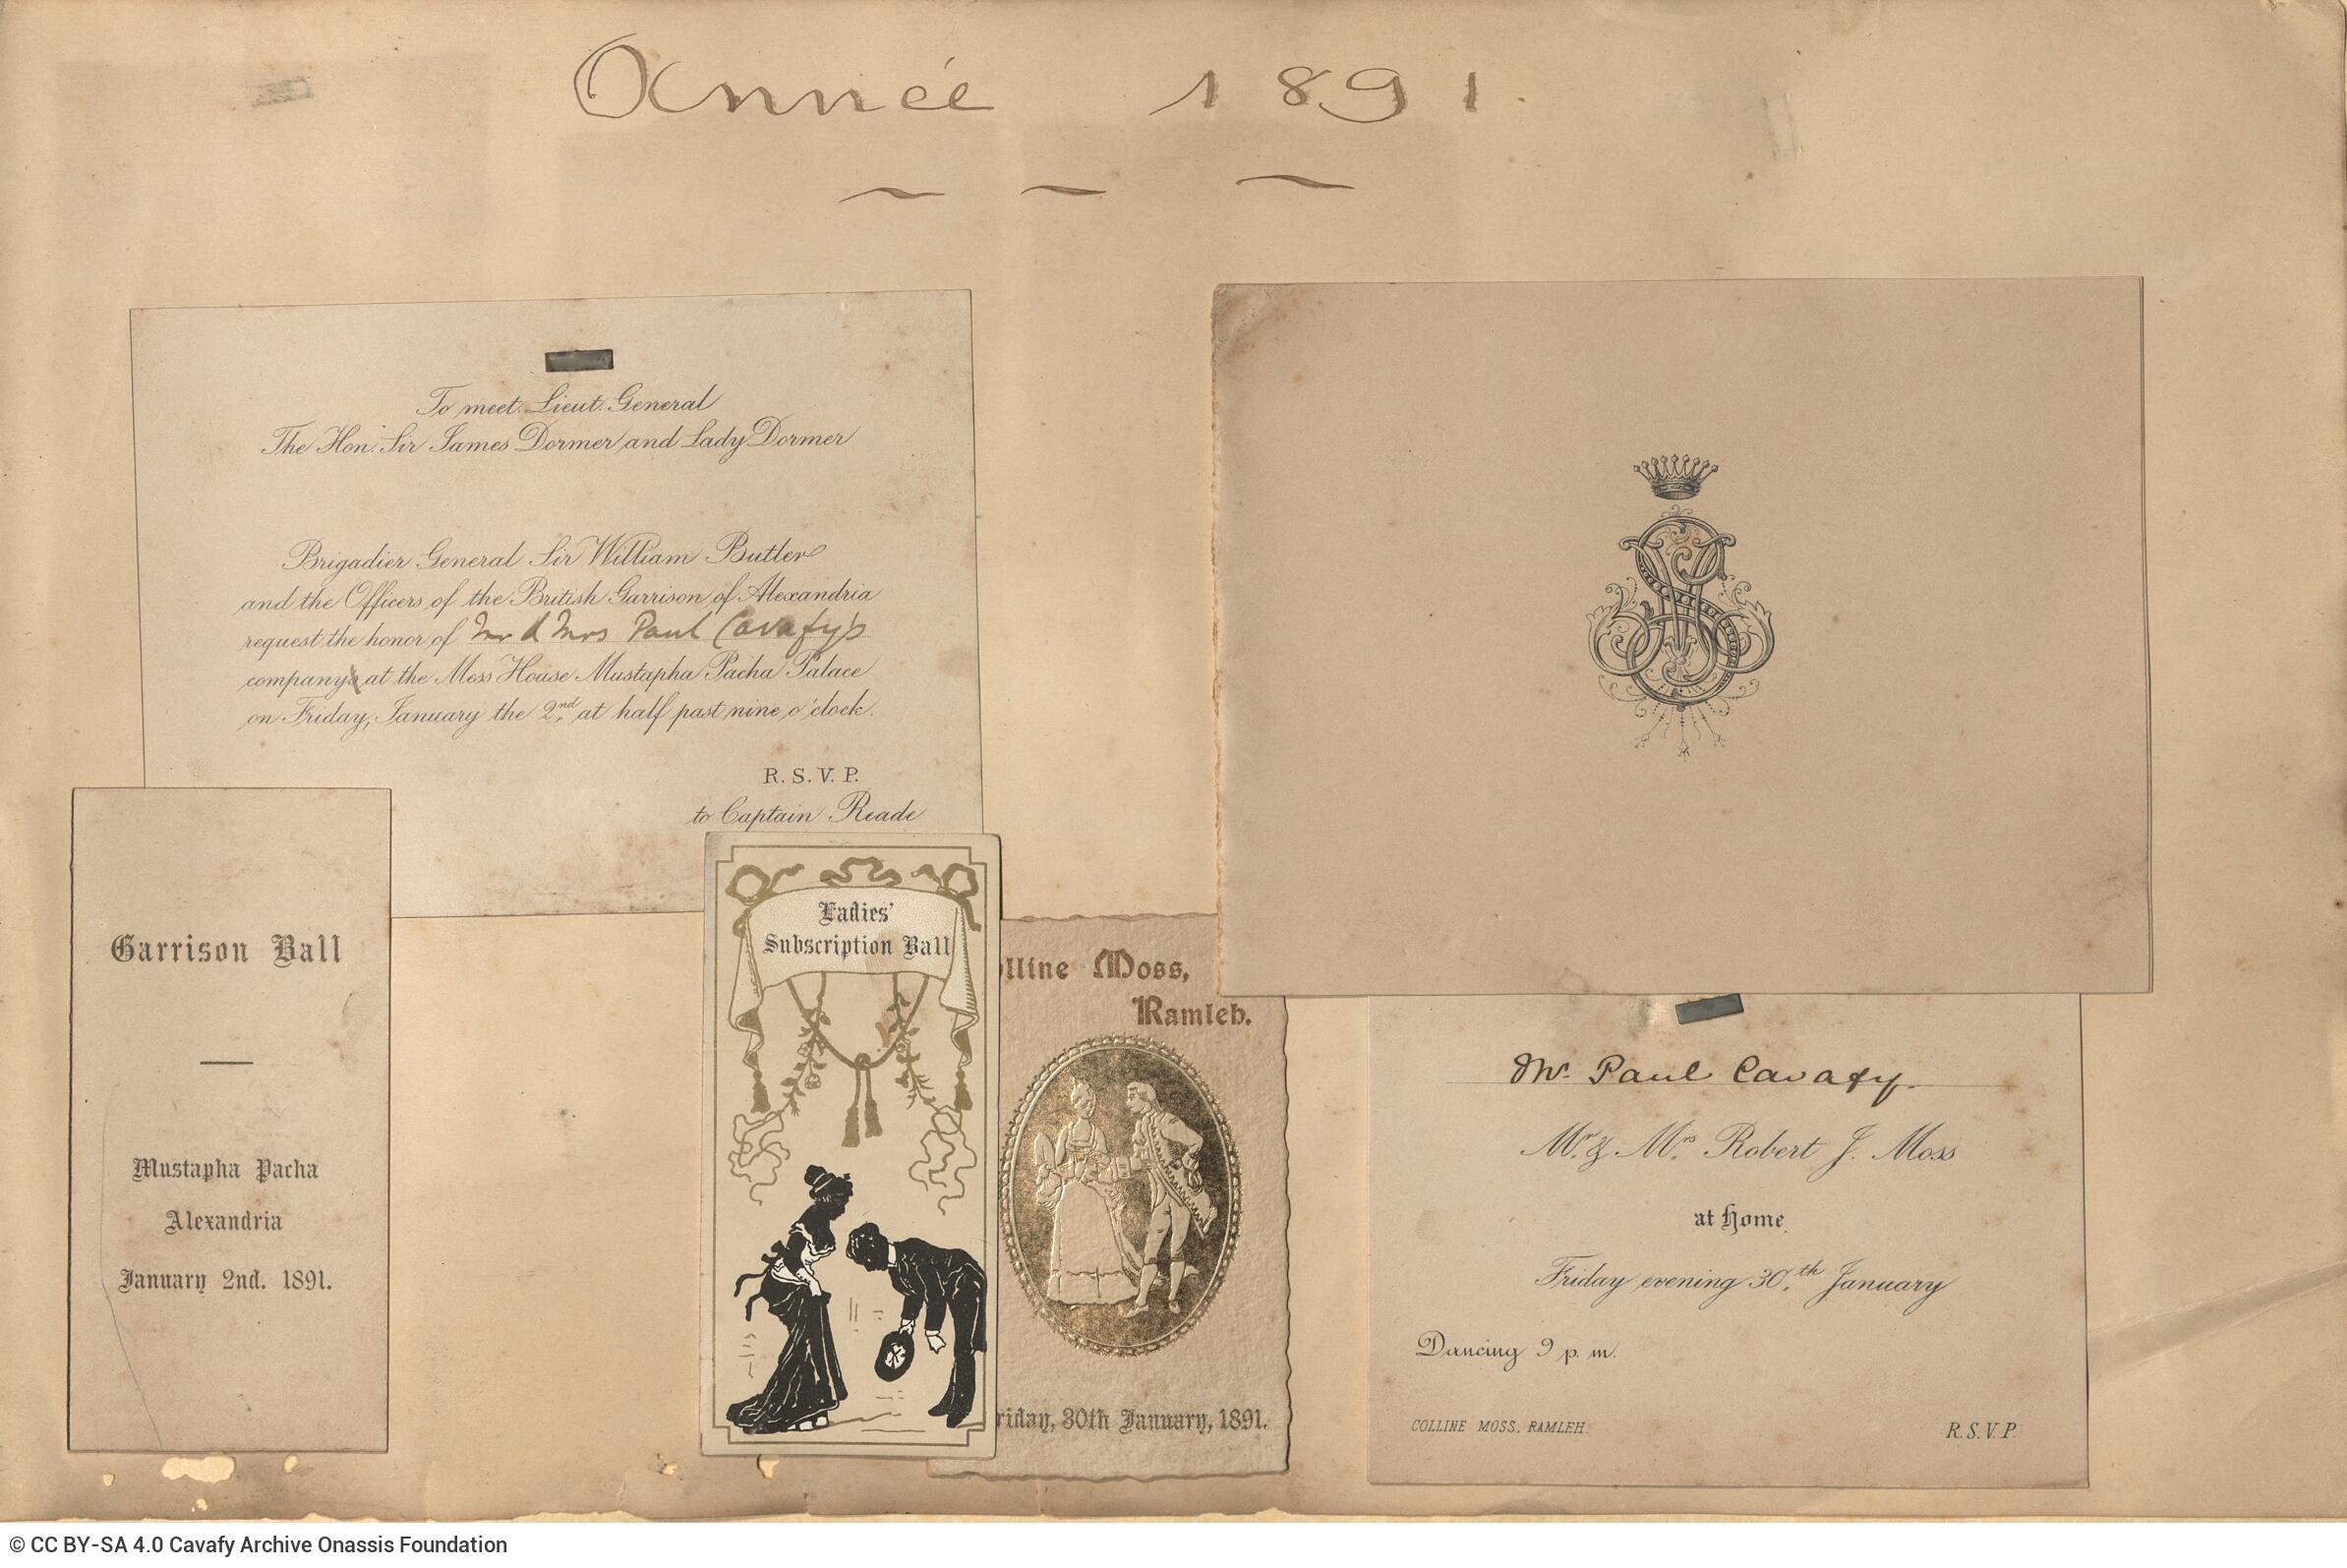 Année 1891.
To meet Lieut. General
The Hon. Sir James Dormer and Lady Dormer
Brigadier General Sir William Butler
and the Officers of the British Garrison of Alexandria
request the honor of Mr & Mrs Paul Cavafy's
company at the Mess House Mustapha Pacha Palace
on Friday, January the 2nd. at half past nine o'clock.
R. S. V. P.
to Captain Reade
Garrison Ball
Mustapha Pacha
Alexandria
January 2nd. 1891.
Ladies'
Subscription Ball
lline Moss,
Ramleh.
riday, 30th January, 1891.
Mr. Paul Cavafy.
Mr. & Mrs. Robert J. Moss
at Home
Friday evening 30th. January
Dancing 9 p. m.
COLLINE MOSS, RAMLEH.
R. S. V. P.
© CC BY-SA 4.0 Cavafy Archive Onassis Foundation